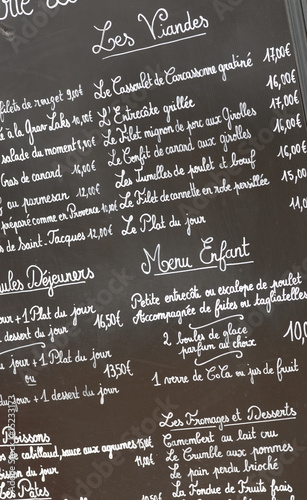 Les Viandes
Le Cassoulet de Carcassonne gratiné 17,00€
L'Entrecôte grillée 17,00€
Le Filet mignon de porc aux Girolles 16,00€
Le Confit de canard aux girolles 16,00€
Les Jumelles de poulet et bœuf 15,00
Le Filet de cannette en robe persillée
Le Plat du jour
filets de rouget 9,00€
à la Grav Laks 10,00€
salade du moment 9,90€
Gras de canard 16,00€
au parmesan 12,00€
préparé comme en Provence
s de Saint-Jacques 12,00€
Menu Enfant
Petite entrecôte ou escalope de poulet
Accompagnée de frites ou tagliatelles
2 boules de glace
parfum au choix
1 verre de CoLa ou jus de fruit
Déjeuners
our + 1 Plat du jour
dessert du jour
16,50€
jour + 1 Plat du jour
ou
du jour + 1 dessert du jour
13,50€
Poissons
de cabillaud, sauce aux agrumes
sson du jour 11,00€
Les Pâtes
Les Fromages et Desserts
Camembert au lait cru
Le Crumble aux pommes
Le pain perdu brioché
La Fondue de Fruits frais